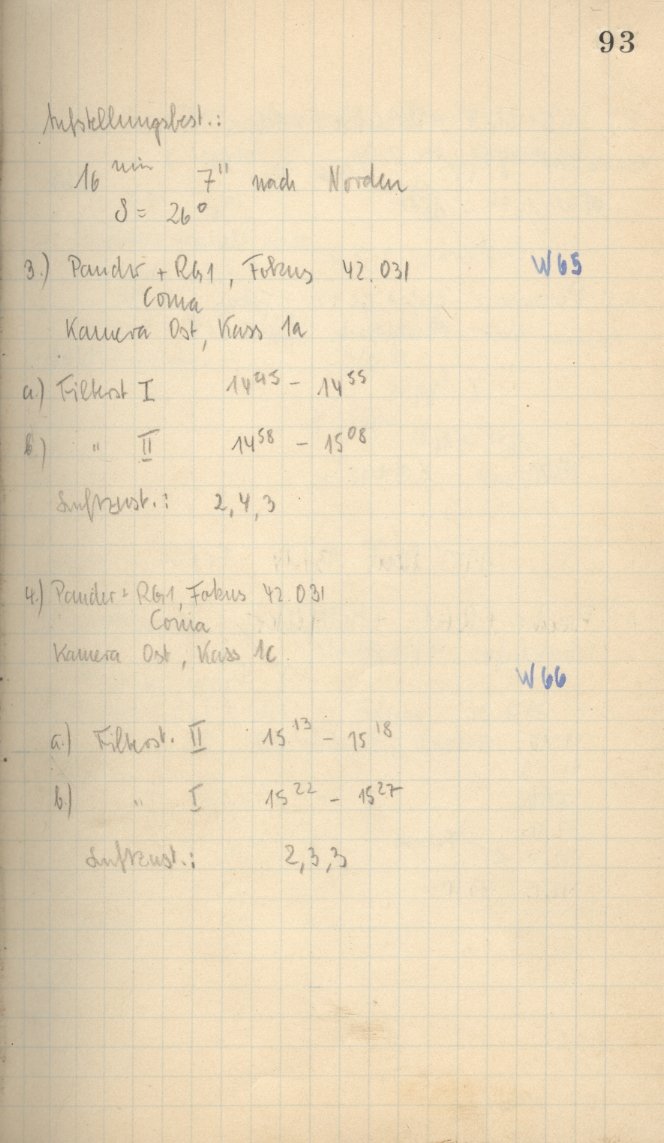 93
Aufstellungsbest.:
16 min 7" nach Norden
δ = 26°
3.) Pander + RG1, Fokus 42.031 W65
Coma
Kamera Ost, Kass 1a
a.) Filterst I 14⁴⁵ - 14⁵⁵
b.) " II 14⁵⁸ - 15⁰⁸
Luftzust.: 2,4,3
4.) Pander + RG1, Fokus 42.031
Coma
Kamera Ost, Kass 1c
W66
a.) Filterst. II 15¹³ - 15¹⁸
b.) " I 15²² - 15²⁷
Luftzust.: 2,3,3